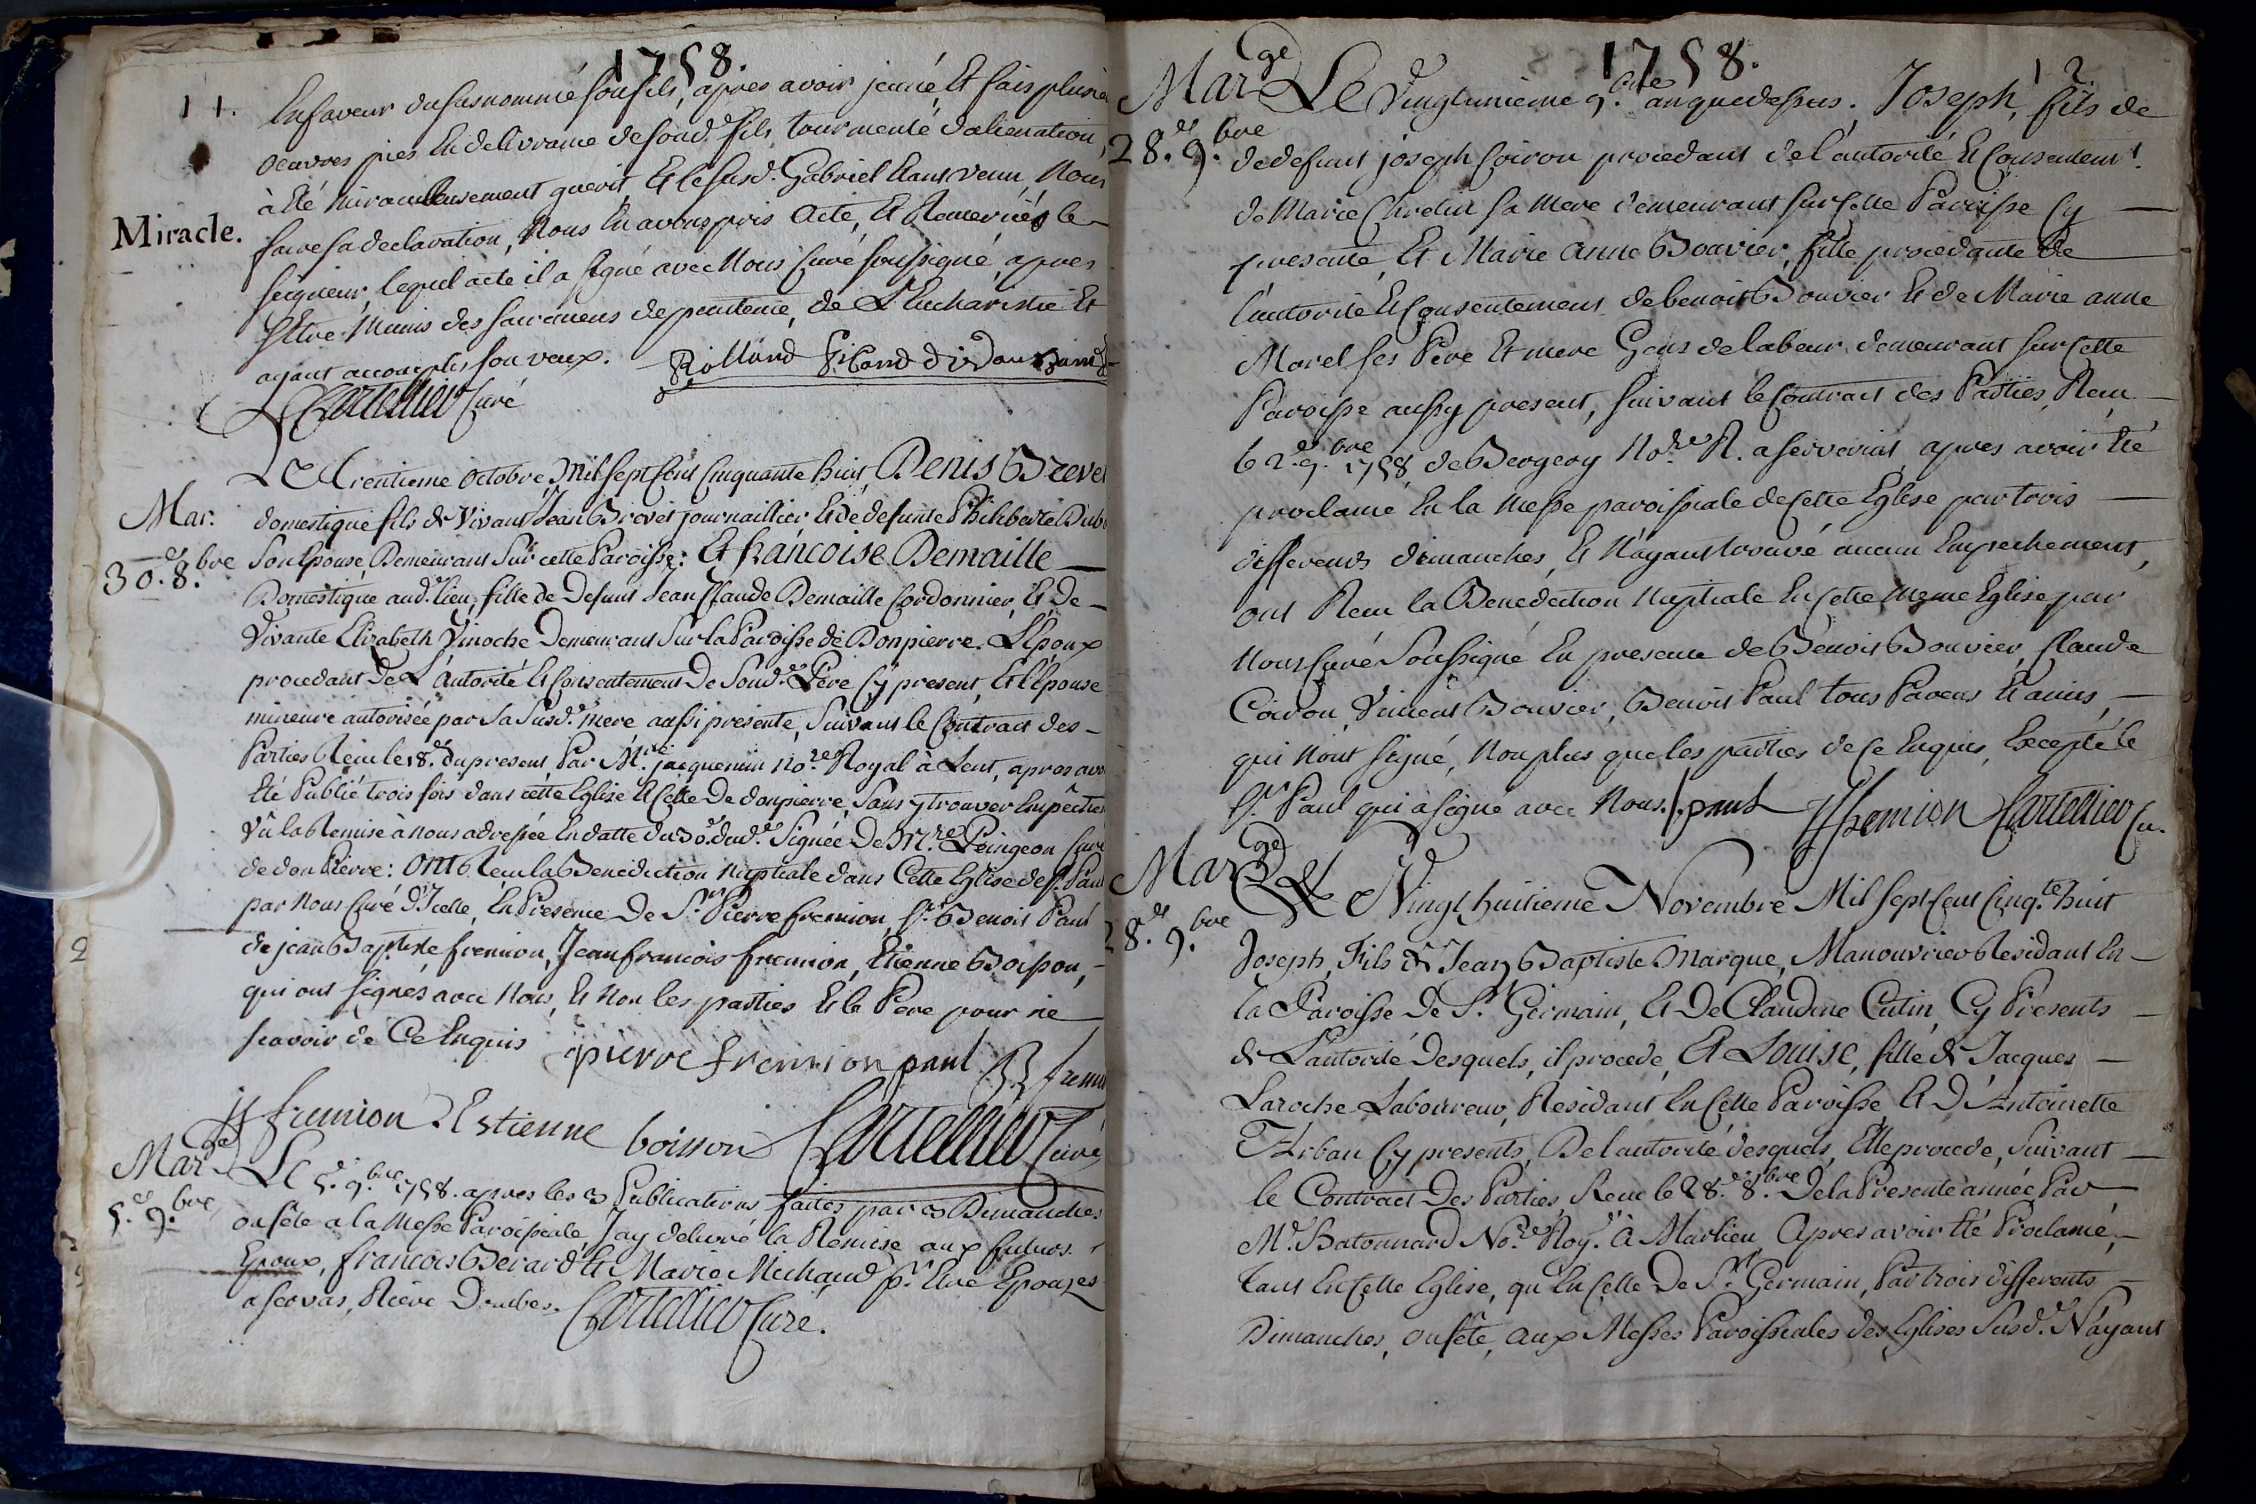 1758.
11.
En faveur du susnommé son fils, apres avoir jeuné, Et fais plusie
oeuvres pies En delivrance de soud.e fils, tourmenté d'alienation,
à Eté miraculeusement guerit Et le susd. Gabriel Etant venu, Nous
Miracle.
faire sa declaration, Nous En avons pris acte, Et Remerciés le
seigneur, lequel acte il a signé avec Nous Curé soussigné, apres
Etre Munis des sacremens de penitence, de L'Eucharistie Et
ayant accomplis son veux. Rolland
Cartellier Curé
Le trentieme octobre Mil sept Cent Cinquante huit Denis Brevet
Mar.
30.e 8.bre
domestique fils de vivant Jean Brevet journaillier Et de defunte Philiberte Dub
son Epouse Demeurant sur cette Paroisse: Et francoise Demaille
Domestique aud. lieu, fille de Defunt Jean Claude Demaille Cordonnier, Et de
vivante Elizabeth Vinoche Demeurant sur la Paroisse de Donpierre. L'Epoux
procedant de L'autorité Et Consentement De soud.e Pere Cy present, Et l'Epouse
mineure autorisée par sa susd.e mere aussi presente, suivant le Contrait des
Parties Recu le 18.e du present Par M.re jacquemin No.re Royal à Lent, apres avo
Eté Publié trois fois dans cette Eglise Et Celle De donpierre, sans y trouver Empêche
Vû la Remise à nous adressée En datte du 30.e dud.e signée De M.re Peingeon Curé
de donpierre: ont Recu la Benediction Nuptiale dans Cette Eglise de St. Paul
par Nous Curé D'Icelle, En Presence De Sr. Pierre fremion, Sr. Benoit Paul
de jean Baptiste fremion, Jean francois fremion, Etienne Boisson,
qui ont signés avec Nous, Et Non les parties Et le Pere pour ne
scavoir de Ce Enquis pierre fremion paul B fremi
jf fremion. Estienne boisson Cartellier Curé
Mar.ge
5.e 9.bre
Le 5.e 9.bre 1758. apres les 3 Publications faites par 3 Dimanches
ou fête a la Messe Paroissiale J'ay delivré la Remise aux futurs
Epoux, francois Berard Et Marie Michaud pr. Etre Epouzes
a servas, Riere Dombes. Cartellier Curé.
1758.
12.
Mar.ge
28.e 9.bre
Le Vingtunieme 9.bre an que dessus. Joseph, fils de
de defunt joseph Coiron procedant de l'autorité Et Consentem.t
de Marie Chretin sa Mere demeurant sur Cette Paroisse Cy
presente, Et Marie Anne Bouvier, fille procedante de
l'autorité Et Consentement de benoit Bouvier Et de Marie anne
Morel ses Pere Et mere Gens de labeur demeurant sur Cette
Paroisse aussy present, suivant le Contrait des Parties, Recu
9.bre 1758, de Bergery No.re R. a servering apres avoir Eté
proclamé En la Messe paroissiale de Cette Eglise par trois
differends dimanches, Et N'ayant trouvé aucun Empechement,
ont Recu la Benediction Nuptiale En Cette meme Eglise par
Nous Curé soussigné En presence de Benoit Bouvier, Claude
Coiron, Vincent Bouvier, Benoit Paul tous Parens Et amis,
qui N'ont signé, Non plus que les parties de Ce Enquis, Excepté le
Sr. Paul qui à signé avec Nous. paul JJ fremion Cartellier Cu.
Mar.ge
28.e 9.bre
Le Vingt huitieme Novembre Mil Sept Cent Cinq.te huit
Joseph, Fils de Jean Baptiste Marque, Manouvrier Residant En
la Paroisse de St. Germain, Et De Claudine Cutin Cy Presents
de L'autorité desquels, il procede, Et Louise, fille de Jacques
Laroche Laboureur, Residant En Cette Paroisse, Et D'Antoinette
Urban Cy presents, De l'autorité desquels, Elle procede, suivant
le Contract Des Parties, Recu le 28.e 8.bre De la Presente année Par
Mr. Batonnard No.re Roy.l à Marlieu, Apres avoir Eté Proclamé,
tant En Cette Eglise, qu'En Celle De St. Germain, Par trois differents
Dimanches, ou fête, aux Messes Paroissiales des Eglises susd.es N'ayant